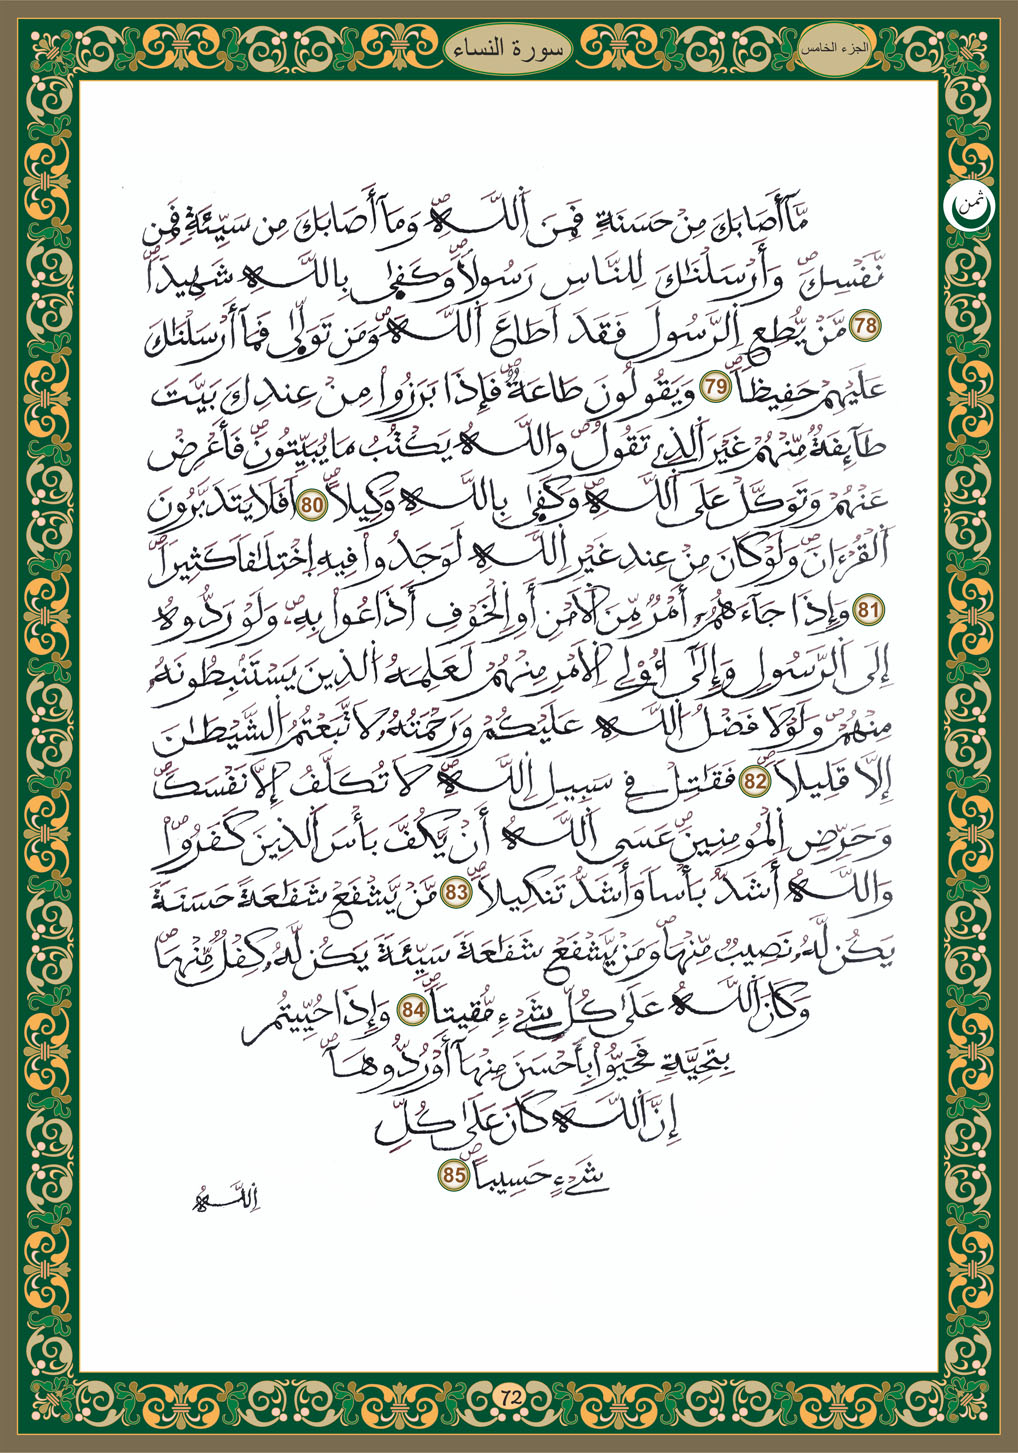 سورة النساء
الجزء الخامس
ثمن
مَّآ أَصَابَكَ مِنْ حَسَنَةٍ فَمِنَ اَ۬للَّهِۖ وَمَآ أَصَابَكَ مِن سَيِّئَةٍ فَمِن
نَّفْسِكَۖ وَأَرْسَلْنَٰكَ لِلنَّاسِ رَسُولاٗۖ وَكَف۪يٰ بِاللَّهِ شَهِيداٗۖ
78 مَّنْ يُّطِعِ اِ۬لرَّسُولَ فَقَدَ اَطَاعَ اَ۬للَّهَۖ وَمَن تَوَلّ۪يٰ فَمَآ أَرْسَلْنَٰكَ
عَلَيْهِمْ حَفِيظاٗۖ 79 وَيَقُولُونَ طَاعَةٞۖ فَإِذَا بَرَزُواْ مِنْ عِندِكَ بَيَّتَ
طَآئِفَةٞ مِّنْهُمْ غَيْرَ اَ۬لذِے تَقُولُۖ وَاللَّهُ يَكْتُبُ مَا يُبَيِّتُونَۖ فَأَعْرِضْ
عَنْهُمْ وَتَوَكَّلْ عَلَى اَ۬للَّهِۖ وَكَف۪يٰ بِاللَّهِ وَكِيلاًۖ 80 اَفَلَا يَتَدَبَّرُونَ
اَ۬لْقُرْءَانَۖ وَلَوْ كَانَ مِنْ عِندِ غَيْرِ اِ۬للَّهِ لَوَجَدُواْ فِيهِ اِ۪خْتِلَٰفاٗ كَثِيراٗۖ
81 وَإِذَا جَآءَهُمُۥٓ أَمْرٞ مِّنَ اَ۬لَامْنِ أَوِ اِ۬لْخَوْفِ أَذَاعُواْ بِهِۦۖ وَلَوْ رَدُّوهُ
إِلَى اَ۬لرَّسُولِ وَإِلَىٰٓ أُوْلِے اِ۬لَامْرِ مِنْهُمْ لَعَلِمَهُ اُ۬لذِينَ يَسْتَنۢبِطُونَهُۥ
مِنْهُمْۖ وَلَوْلَا فَضْلُ اُ۬للَّهِ عَلَيْكُمْ وَرَحْمَتُهُۥ لَاتَّبَعْتُمُ اُ۬لشَّيْطَٰنَ
إِلَّا قَلِيلاٗۖ 82 فَقَٰتِلْ فِے سَبِيلِ اِ۬للَّهِۖ لَا تُكَلَّفُ إِلَّا نَفْسَكَۖ
وَحَرِّضِ اِ۬لْمُومِنِينَۖ عَسَى اَ۬للَّهُ أَنْ يَّكُفَّ بَأْسَ اَ۬لذِينَ كَفَرُواْۖ
وَاللَّهُ أَشَدُّ بَأْساٗ وَأَشَدُّ تَنكِيلاٗۖ 83 مَّنْ يَّشْفَعْ شَفَٰعَةً حَسَنَةٗ
يَكُن لَّهُۥ نَصِيبٞ مِّنْهَاۖ وَمَنْ يَّشْفَعْ شَفَٰعَةٗ سَيِّئَةٗ يَكُن لَّهُۥ كِفْلٞ مِّنْهَاۖ
وَكَانَ اَ۬للَّهُ عَلَىٰ كُلِّ شَےْءٖ مُّقِيتاٗۖ 84 وَإِذَا حُيِّيتُم
بِتَحِيَّةٖ فَحَيُّواْ بِأَحْسَنَ مِنْهَآ أَوْ رُدُّوهَآۖ
إِنَّ اَ۬للَّهَ كَانَ عَلَىٰ كُلِّ
شَےْءٍ حَسِيباًۖ 85
اِ۬للَّهُ
72